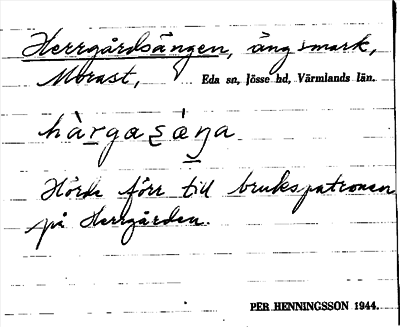 Herrgårdsängen, ängsmark,
Morast, Eda sn, Jösse hd, Värmlands län.
hàrgaṣáŋa
Hörde förr till brukspatronen
på Herrgården.
PER HENNINGSSON 1944.